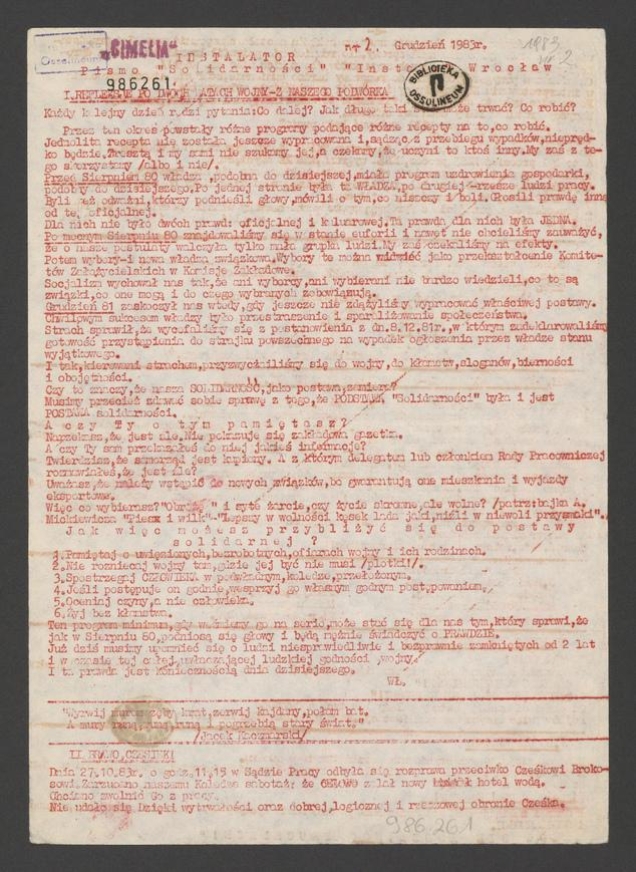 Ossolineum
"CIMELIA"
nr 2. Grudzień 1983r.
1983
nr 2
INSTALATOR
Pismo "Solidarności" Wrocław
986261
BIBLIOTEKA
OSSOLINEUM
I.REFLEKSJE PO DWÓCH LATACH WOJNY-Z NASZEGO PODWÓRKA
Każdy kolejny dzień rodzi pytania:Co dalej? Jak długo taki może trwać? Co robić?
Przez ten okres powstały różne programy podające różne recepty na to,co robić.
Jednolita recepta nie została jeszcze wypracowana i,sądząc,z przebiegu wypadków,niepręd-
ko będzie.Zresztą i my sami nie szukamy jej,a czekamy,że uczyni to ktoś inny.My zaś z te-
go skorzystamy /albo i nie/.
Przed Sierpniem 80 władza ,podobna do dzisiejszej,miała program uzdrowienia gospodarki,
podobny do dzisiejszego.Po jednej stronie była ta WŁADZA,po drugiej -rzesze ludzi pracy.
Byli też odważni,którzy podnieśli głowy,mówili o tym,co niszczy i boli.Głosili prawdę inną
od tej oficjalnej.
Dla nich nie było dwóch prawd: oficjalnej i kuluarowej.Ta prawda dla nich była JEDNA.
Po mocnym Sierpniu 80 znajdowaliśmy się w stanie euforii i nawet nie chcieliśmy zauważyć,
że o nasze postulaty walczyła tylko mała grupka ludzi.My zaś czekaliśmy na efekty.
Potem wybory-i nowa władza związkowa.Wybory te można widzieć jako przekształcenie Komite-
tów Założycielskich w Komisje Zakładowe.
Socjalizm wychował nas tak,że ani wyborcy,ani wybierani nie bardzo wiedzieli,co to są
związki,co one mogą i do czego wybranych zobowiązują.
Grudzień 81 zaskoczył nas wtedy,gdy jeszcze nie zdążyliśmy wypracować właściwej postawy.
Chwilowym sukcesem władzy było przestraszenie i sparaliżowanie społeczeństwa.
Strach sprawił,że wycofaliśmy się z postanowienia z dn.8.12.81r.,w którym zadeklarowaliśmy
gotowość przystąpienia do strajku powszechnego na wypadek ogłoszenia przez władze stanu
wyjątkowego.
I tak,kierowani strachem,przyzwyczailiśmy się do wojny,do kłamstw,sloganów,bierności
i obojętności.
Czy to znaczy,że nasza SOLIDARNOŚĆ,jako postawa,zamiera?
Musimy przecież zdawać sobie sprawę z tego,że PODSTAWĄ "Solidarności" była i jest
POSTAWA solidarności.
A czy Ty o tym pamiętasz?
Narzekasz,że jest źle.Nie pokazuje się zakładowa gazetka.
A czy Ty sam przekazałeś do niej jakieś informacje?
Twierdzisz,że samorząd jest kupiony. A z którym delegatem lub członkiem Rady Pracowniczej
rozmawiałeś,że jest źle?
Uważasz,że należy wstąpić do nowych związków,bo gwarantują one mieszkania i wyjazdy
eksportowe.
Więc co wybierasz? i syte żarcie,czy życie skromne,ale wolne? /patrz:bajka A.
Mickiewicza "Piesx i wilk"-"Lepszy w wolności kęsek lada jaki,niźli w niewoli przysmaki".
Jak więc możesz przybliżyć się do postawy
solidarnej ?
1.Pamiętaj o uwięzionych,bezrobotnych,ofiarach wojny i ich rodzinach.
2.Nie rozniecaj wojny tam,gdzie jej być nie musi /plotki!/.
3.Spostrzegaj CZŁOWIEKA w podwładnym,koledze,przełożonym.
4.Jeśli postępuje on godnie,wesprzyj go własnym godnym postępowaniem.
5.Oceniaj czyny,a nie człowieka.
6.Żyj bez kłamstwa.
Ten program minimum,gdy weźmiemy go na serio,może stać się dla nas tym,który sprawi,że
jak w Sierpniu 80,podniosą się głowy i będą mężnie świadczyć o PRAWDZIE.
Już dziś musimy upomnieć się o ludzi niesprawiedliwie i bezprawnie zamkniętych od 2 lat
i w czasie tej całej,uwłaczającej ludzkiej godności ,wojny.
I ta prawda jest koniecznością dnia dzisiejszego.
Wł.
"Wyrwij murom zęby krat,zerwij kajdany,połam bat.
A mury runą i pogrzebią stary świat."
/Jacek Kaczmarski/
II.BRAWO,CZESIEK!
Dnia 27.10.83r. o godz.11,15 w Sądzie Pracy odbyła się rozprawa przeciwko Cześkowi Broko-
sowi.Zarzucano naszemu Koledze sabotaż: że CELOWO zalał nowy hotel wodą.
Chciano zwolnić Go z pracy.
Nie udało się.Dzięki wytrwałości oraz dobrej,logicznej i rzeczowej obronie Cześka.
986.261